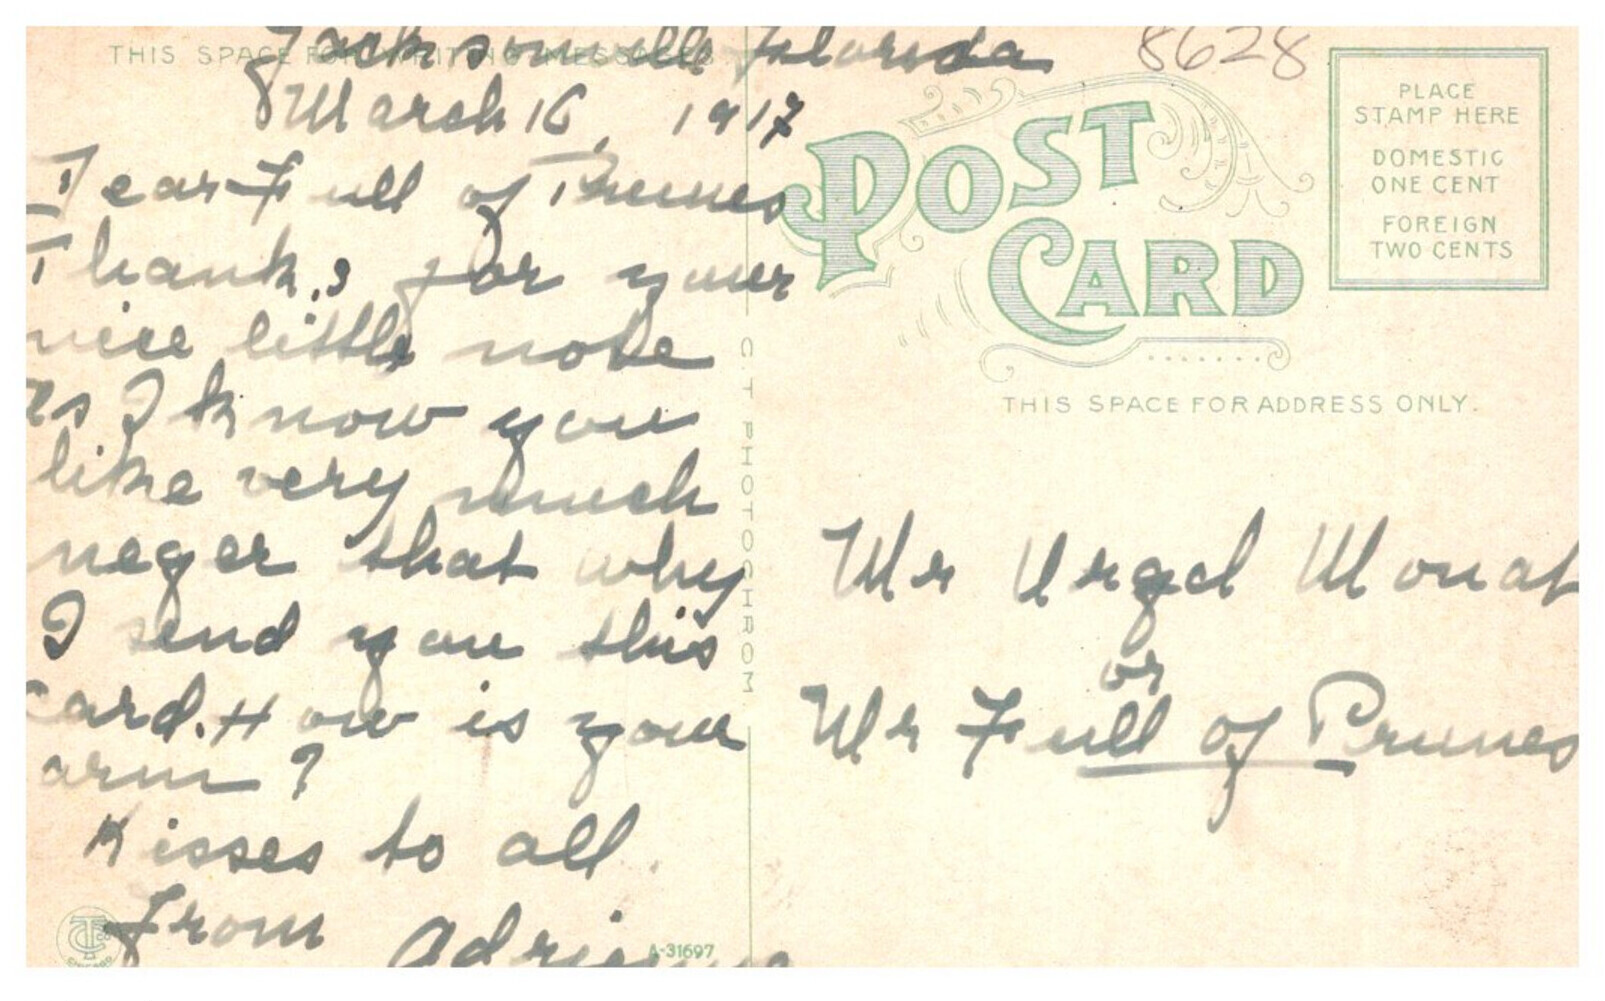 Jacksonville Florida
THIS SPACE FOR WRITING MESSAGES
March 16, 1917
Dear Full of Prunes
Thanks for your
nice little note
as I know you
like very much
neger that why
I send you this
card. How is your
arm?
Kisses to all
From Adrienne
A-31697
C.T. PHOTOCHROM
8628
POST
CARD
PLACE
STAMP HERE
DOMESTIC
ONE CENT
FOREIGN
TWO CENTS
THIS SPACE FOR ADDRESS ONLY.
Mr Urgel Monat
or
Mr Full of Prunes